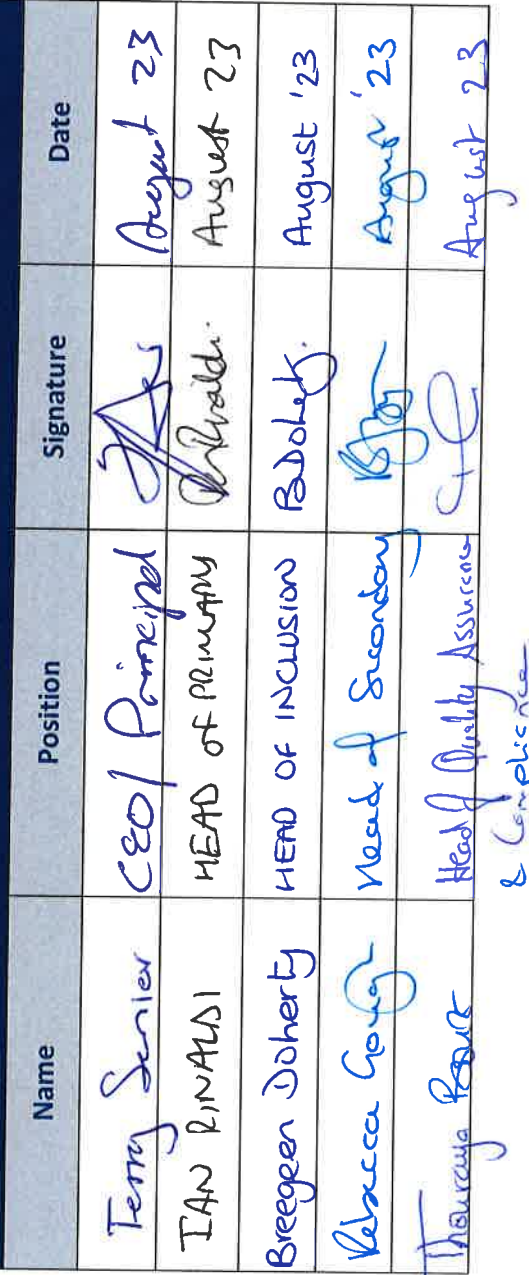 Name Position Signature Date
Terry Senior CEO/ Principal August 23
IAN RINALDI HEAD of PRIMARY R Rinaldi. August 23
Breegeen Doherty HEAD OF INCLUSION BDoherty. August '23
Rebecca Gough Head of Secondary August '23
Thouraya Head of Quality Assurance August 23
& Compliance